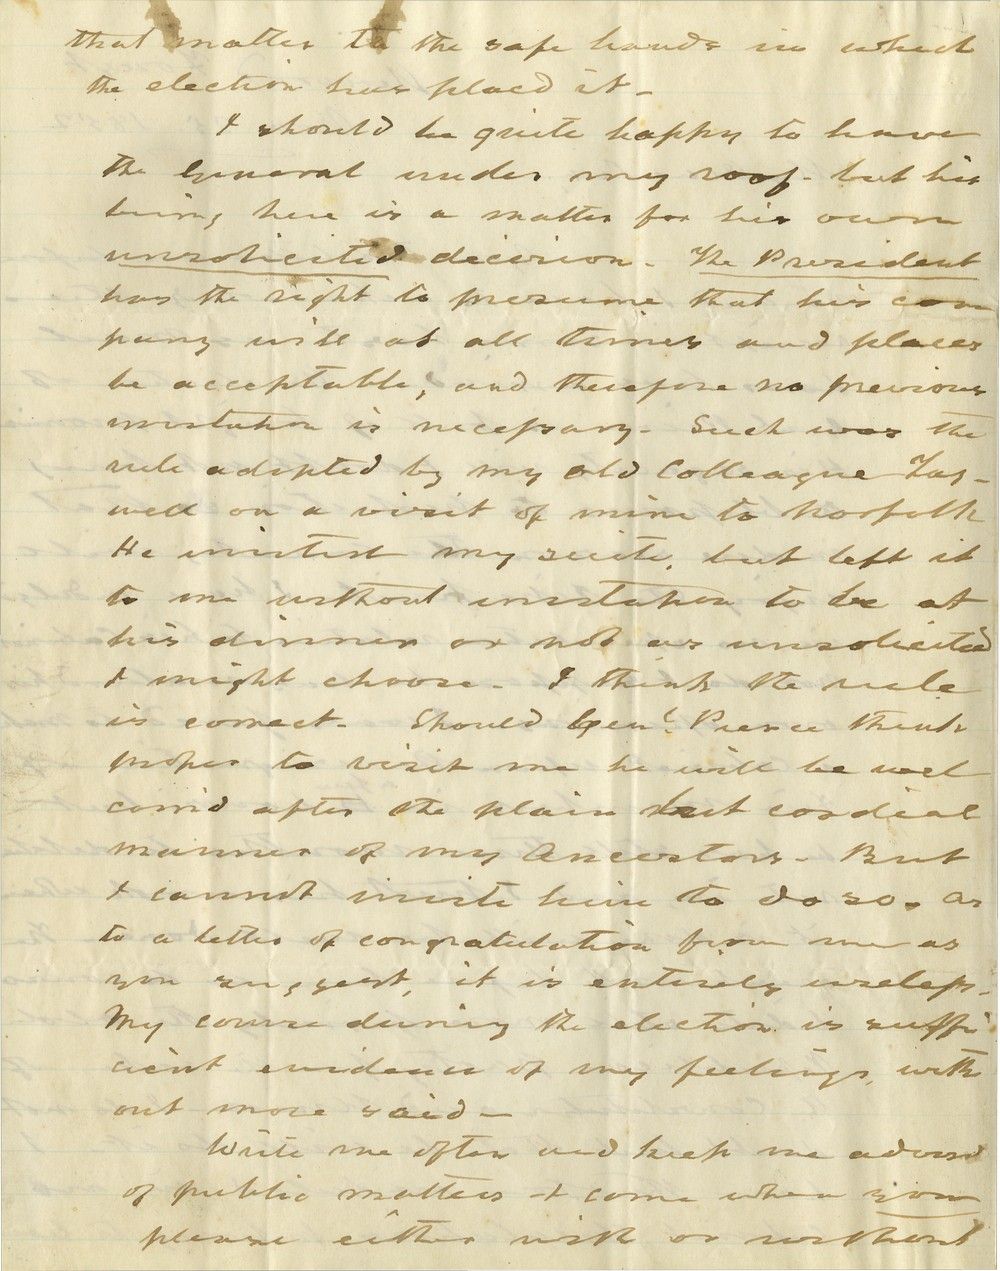 that matter to the safe hands in which
the election has placed it -
I should be quite happy to have
the General under my roof - but his
being here is a matter for his own
unsolicited decision - The President
has the right to presume that his com
pany will at all times and places
be acceptable, and therefore no previous
invitation is necessary - Such was the
rule adopted by my old Colleague Taz-
well on a visit of mine to Norfolk
He invited my suite, but left it
to me without invitation to be at
his dinner or not as unsolicited
I might choose - I think the rule
is correct - Should Genl. Pierce think
proper to visit me he will be wel
comd after the plain but cordial
manner of my Ancestors - But
I cannot invite him to do so. As
to a letter of congratulation from me as
you suggest, it is entirely useless.
My course during the election is suffi
cient evidence of my feelings, with
out more said -
Write me often and keep me advisd
of public matters & come when you
please either with or without